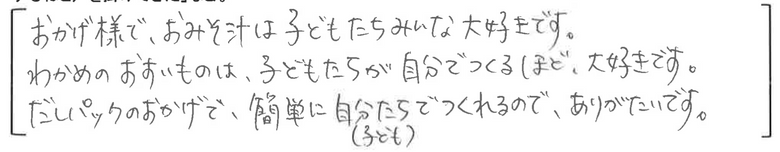 おかげ様で、おみそ汁は子どもたちみいな大好きです。
わかめのおすいものは、子どもたちが自分でつくるほど、大好きです。
だしパックのおかげで、簡単に自分たちでつくれるので、ありがたいです。
(子ども)